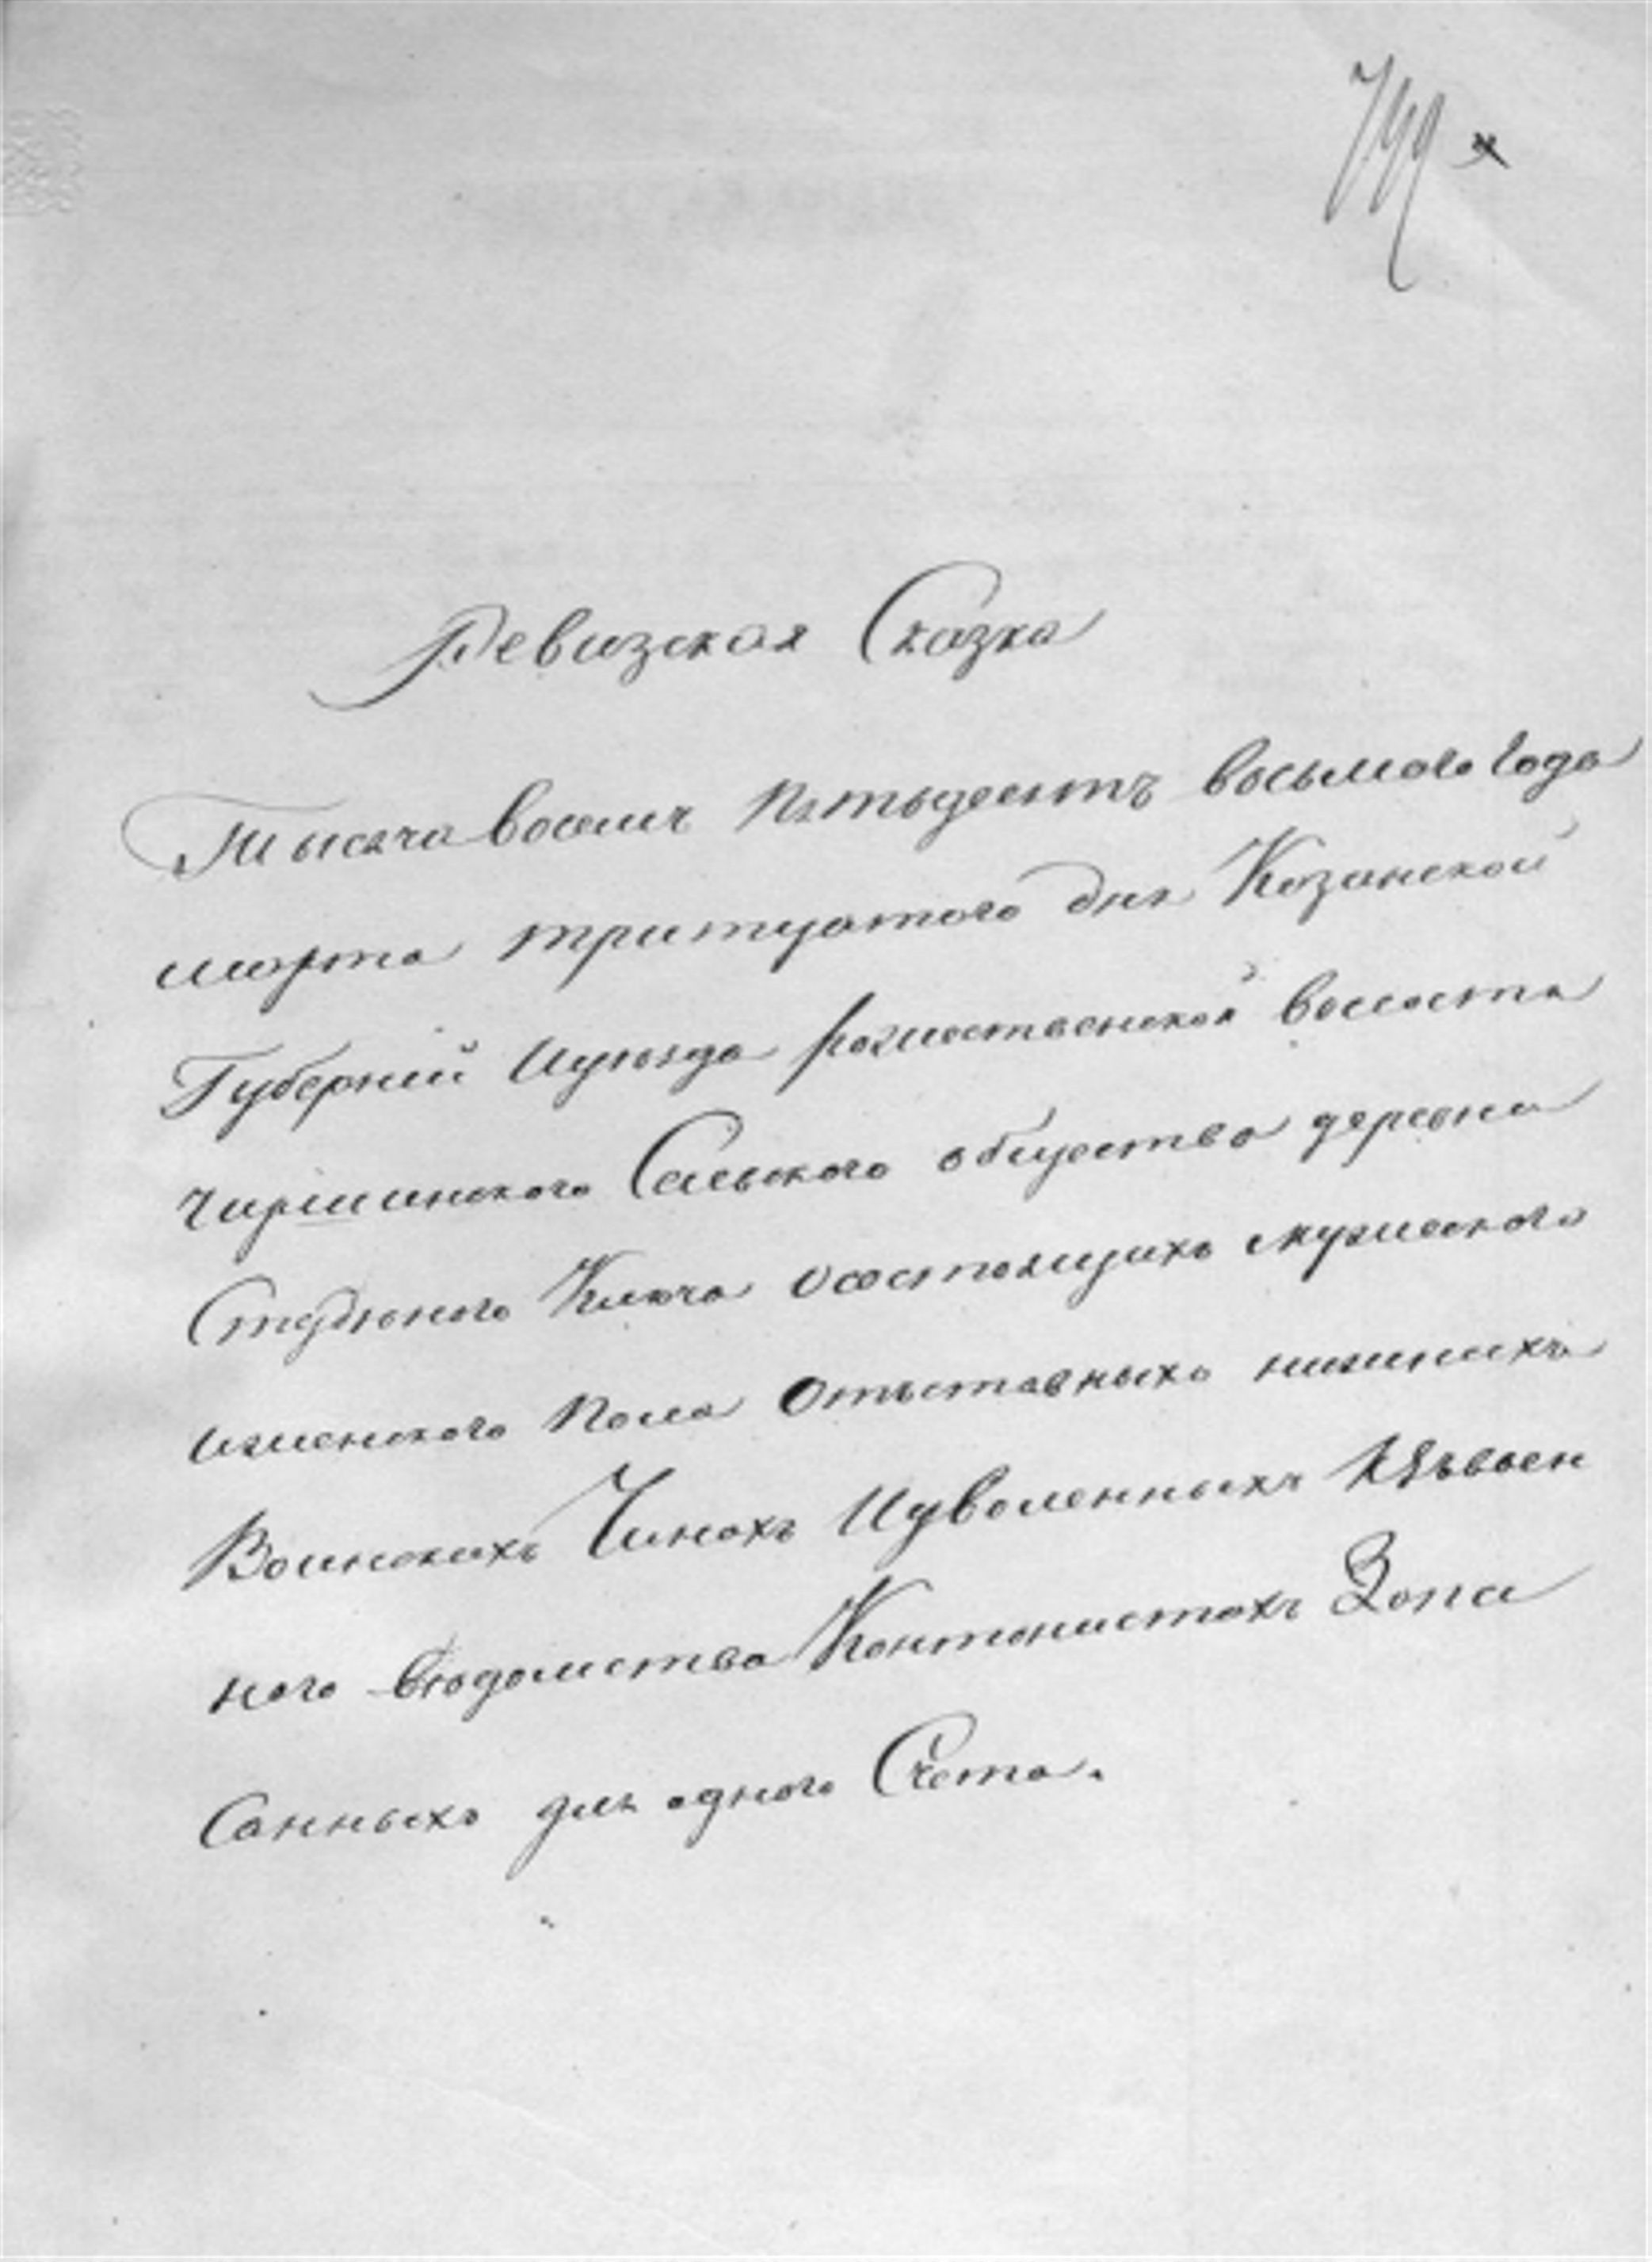 Ревизская Сказка
Тысяча восемь пятьдесятъ восьмого Года
марта тритцатого дня Казанской
Губернiй Иуѣзда рожественской волости
Чиршинского Сельского общества деревни
Студѣного Ключа осостоящихъ мужеского
иженского пола Отъставныхъ нижнихъ
Воинскихъ Чинахъ Иуволенныхъ
ного вѣдомства Кантонистахъ Запи
Санныхъ для одного Счета.